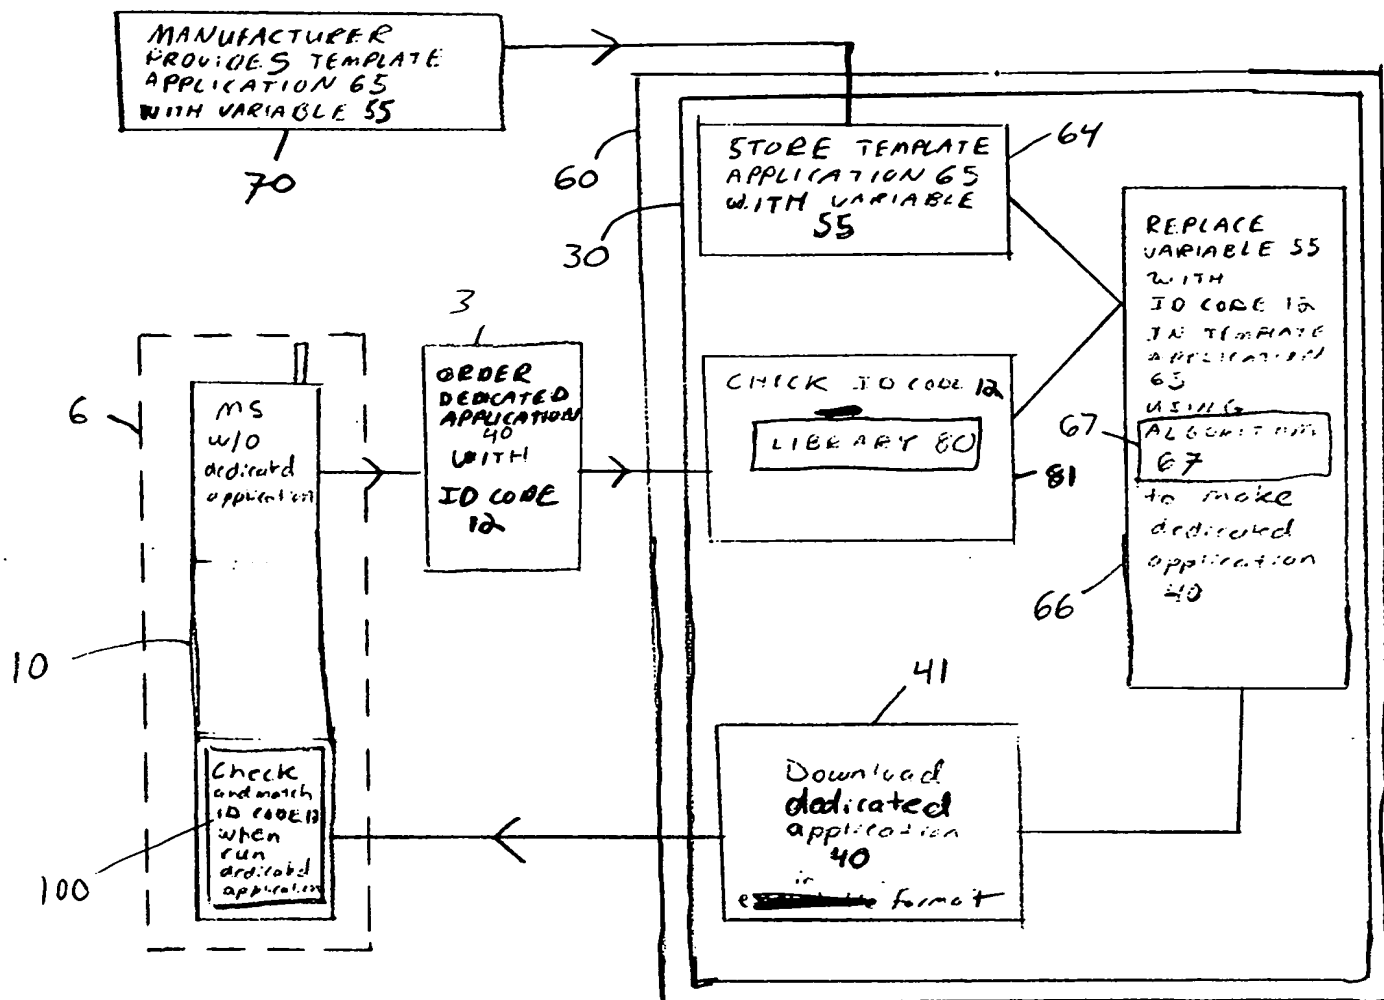 MANUFACTURER
PROVIDES TEMPLATE
APPLICATION 65
WITH VARIABLE 55
70
60
30
STORE TEMPLATE
APPLICATION 65
WITH VARIABLE
55
64
REPLACE
VARIABLE 55
WITH
ID CODE 12
IN TEMPLATE
APPLICATION
65
USING
ALGORITHM
67
to make
dedicated
application
40
67
66
3
ORDER
DEDICATED
APPLICATION
40
WITH
ID CODE
12
CHECK ID CODE 12
LIBRARY 80
81
6
MS
w/o
dedicated
application
10
Check
and match
ID CODE 12
when
run
dedicated
application
100
41
Download
dedicated
application
40
in
format